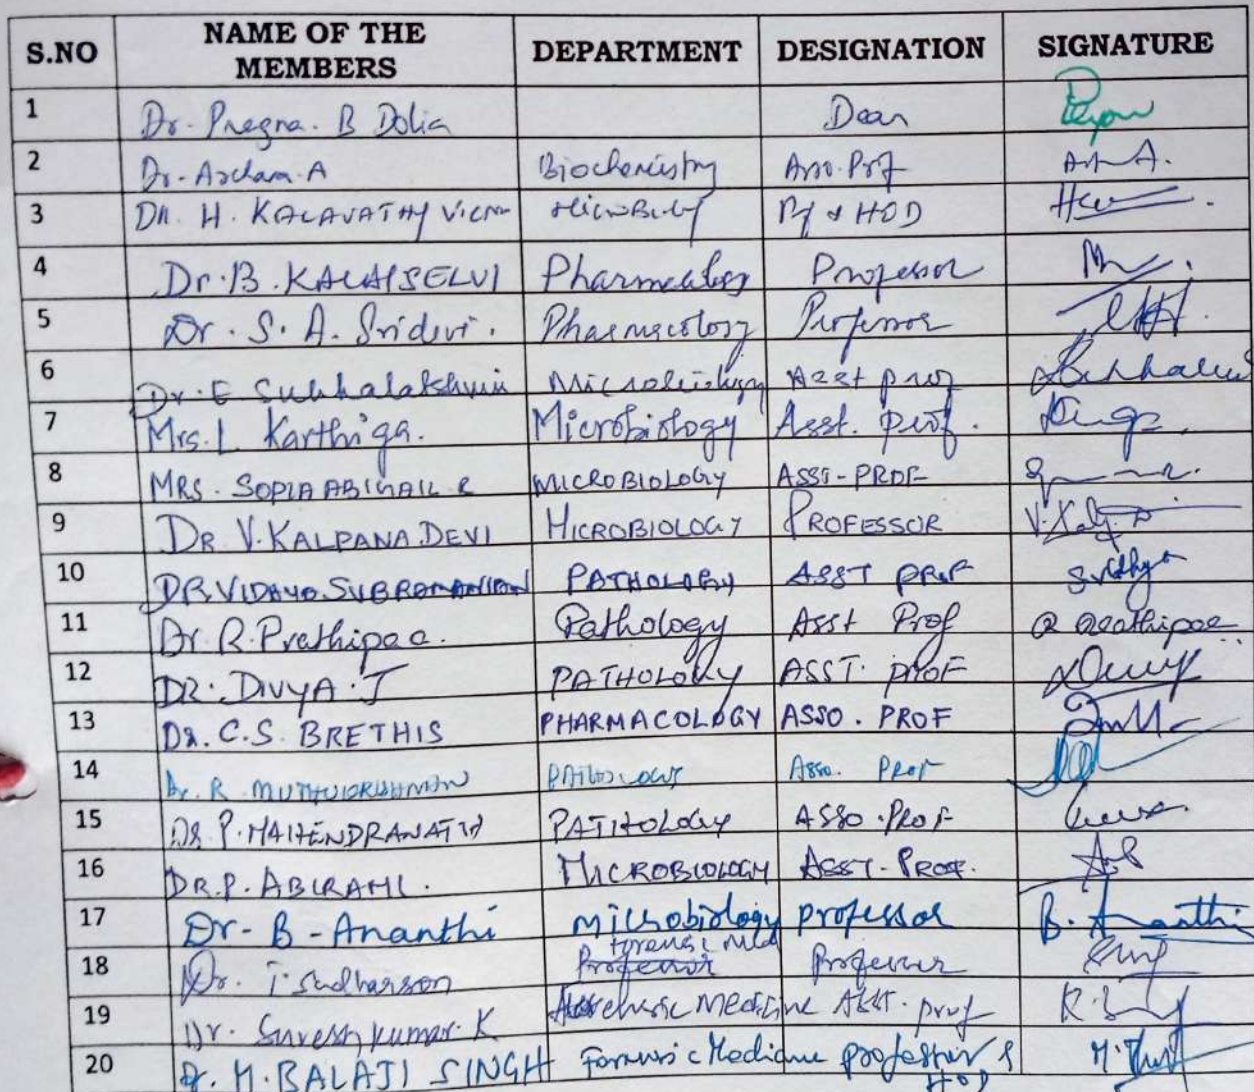 S.NO NAME OF THE MEMBERS DEPARTMENT DESIGNATION SIGNATURE
1 Dr. Pragna. B Dolia Dean
2 Dr. Archana. A Biochemistry Asso. Prof
3 Dr. H. KALAVATHY Prf & HOD
4 Dr. B. KALAISELVI Pharmacology Professor
5 Dr. S. A. Sridevi. Pharmacology Professor
6 Dr. E Subhalakshmi Microbiology Asst prof
7 Mrs. L Karthiga. Microbiology Asst. prof.
8 MRS. SOPIA ABIGAIL R MICROBIOLOGY ASST-PROF
9 DR V. KALPANA DEVI MICROBIOLOGY PROFESSOR
10 DR. VIDHYA SUBRAMANIAN PATHOLOGY ASST PROF
11 Dr. R. Prathipaa. Pathology Asst Prof
12 DR. DIVYA. J PATHOLOGY ASST. PROF
13 DR. C.S. BRETHIS PHARMACOLOGY ASSO. PROF
14 Dr. R. PATHOLOGY ASSO. PROF
15 DR. P. MAHENDRANATH PATHOLOGY ASSO. PROF
16 DR. P. ABIRAMI. MICROBIOLOGY ASST-PROF.
17 Dr- B -Ananthi microbiology professor B. Ananthi
18 Dr. T. Sudharson Forensic Med Professor
19 Dr. Sureshkumar. K Forensic Medicine Asst. prof
20 Dr. M. BALAJI SINGH Forensic Medicine professor & HOD